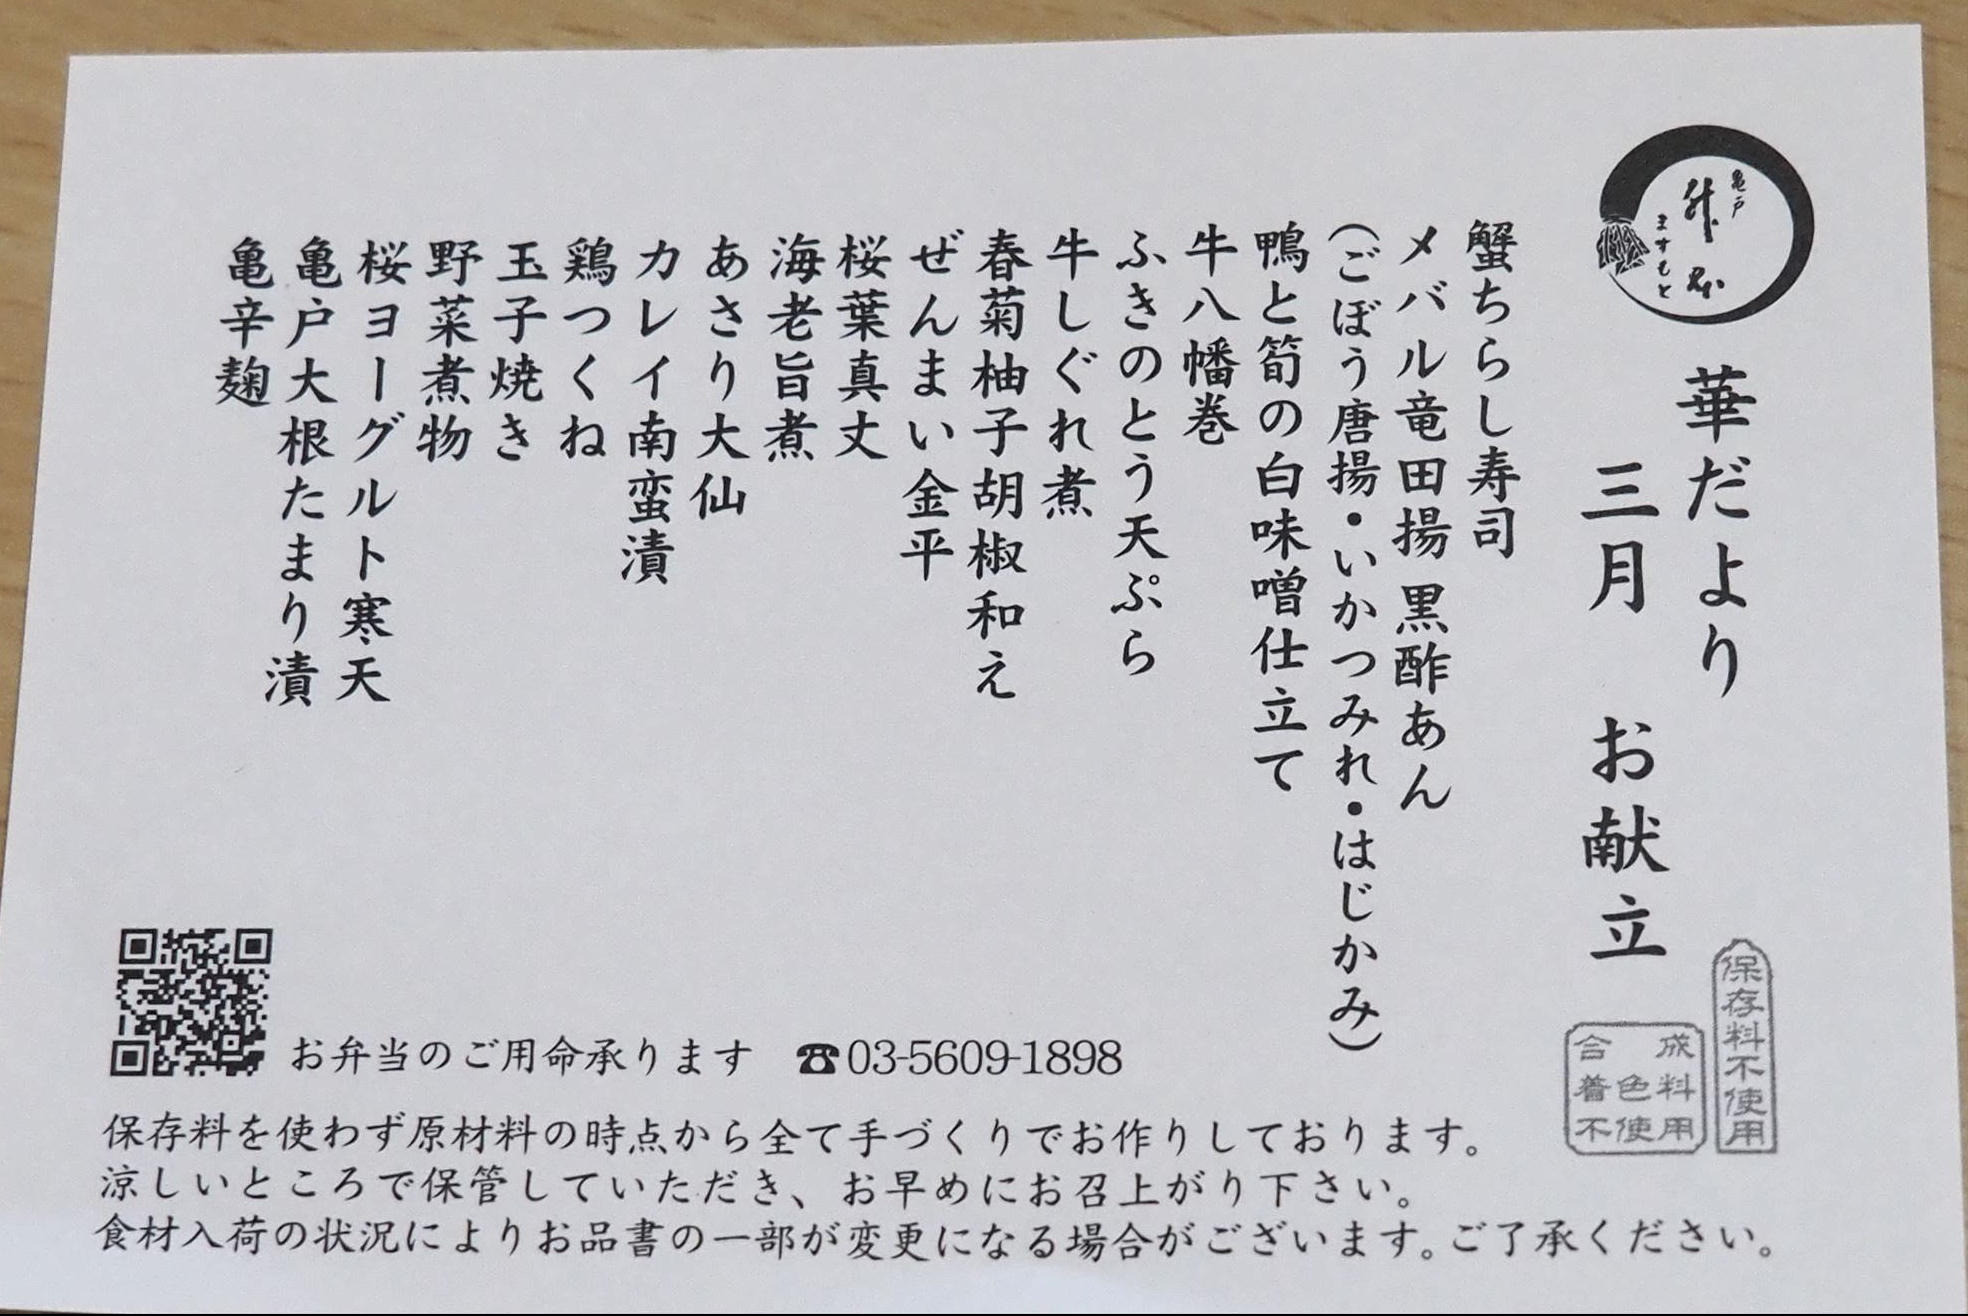 亀戸
升本
ますもと
華だより
三月 お献立
蟹ちらし寿司
メバル竜田揚 黒酢あん
(ごぼう唐揚・いかつみれ・はじかみ)
鴨と筍の白味噌仕立て
牛八幡巻
ふきのとう天ぷら
牛しぐれ煮
春菊柚子胡椒和え
ぜんまい金平
桜葉真丈
海老旨煮
あさり大仙
カレイ南蛮漬
鶏つくね
玉子焼き
野菜煮物
桜ヨーグルト寒天
亀戸大根たまり漬
亀辛麹
保存料不使用
合成
着色料
不使用
お弁当のご用命承ります ☎03-5609-1898
保存料を使わず原材料の時点から全て手づくりでお作りしております。
涼しいところで保管していただき、お早めにお召上がり下さい。
食材入荷の状況によりお品書の一部が変更になる場合がございます。ご了承ください。